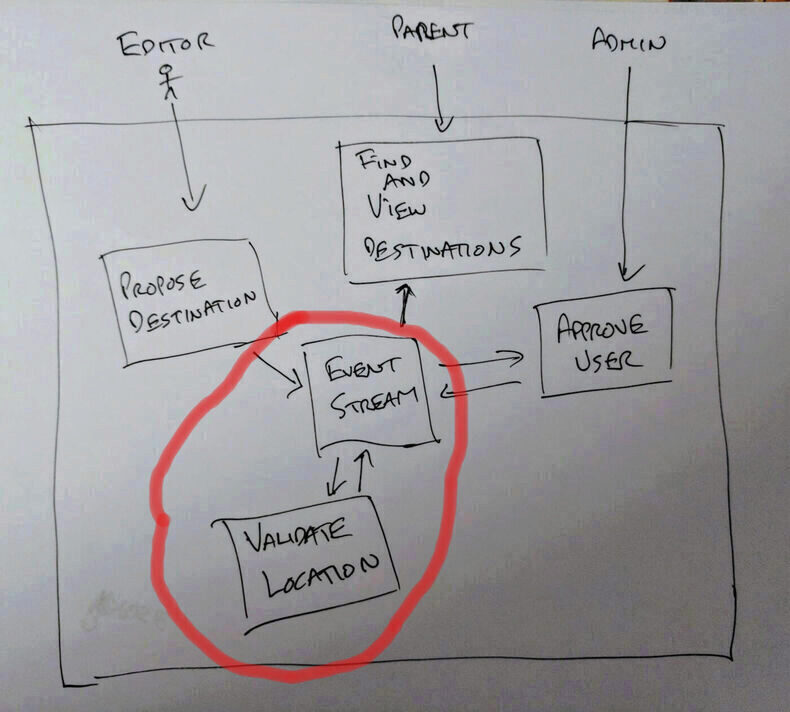 EDITOR
PARENT
ADMIN
FIND
AND
VIEW
DESTINATIONS
PROPOSE
DESTINATION
APPROVE
USER
EVENT
STREAM
VALIDATE
LOCATION